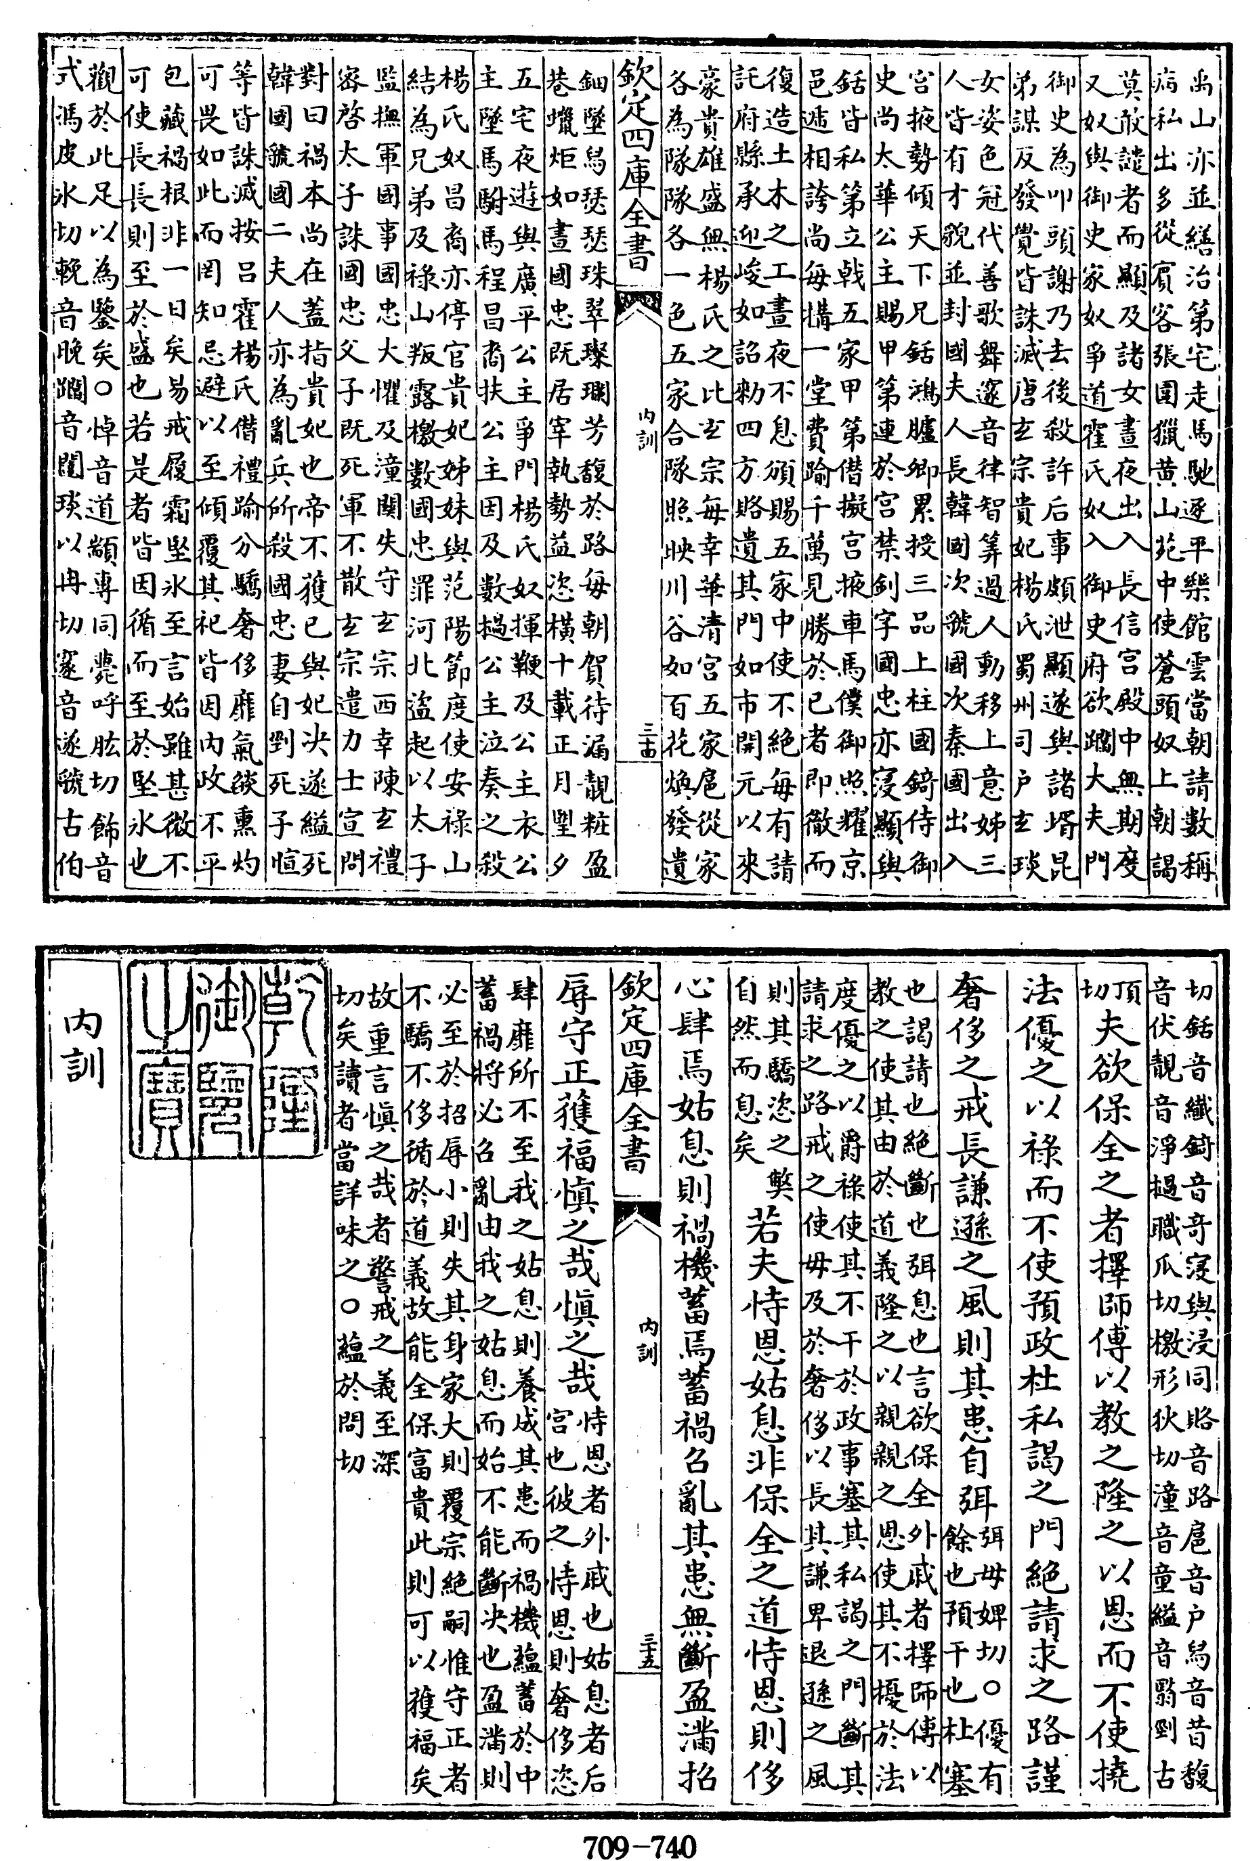 禹山亦並繕治第宅走馬馳逐平樂館雲當朝請數稱
病私出多從賓客張圍獵黃山苑中使蒼頭奴上朝謁
莫敢譴者而顯及諸女晝夜出入長信宮殿中無期度
又奴與御史家奴爭道霍氏奴入御史府欲蹋大夫門
御史為叩頭謝乃去後殺許后事頗泄顯遂與諸壻昆
弟謀反發覺皆誅滅唐玄宗貴妃楊氏蜀州司户玄琰
女姿色冠代善歌舞邃音律智算過人動移上意姊三
人皆有才貌並封國夫人長韓國次虢國次秦國出入
宮掖勢傾天下兄銛鴻臚卿累授三品上柱國錡侍御
史尚太華公主賜甲第連於宮禁釗字國忠亦寖顯與
銛皆私第立戟五家甲第僣擬宮掖車馬僕御照耀京
邑遞相誇尚每搆一堂費踰千萬見勝於已者即徹而
復造土木之工晝夜不息頒賜五家中使不絶每有請
託府縣承迎峻如詔勅四方賂遺其門如市開元以來
豪貴雄盛無楊氏之比玄宗每幸華清宮五家扈從家
各為隊隊各一色五家合隊照映川谷如百花煥發遺
欽定四庫全書
內訓
三十四
鈿墜舄瑟瑟珠翠璨瓓芳馥於路每朝賀待漏靚粧盈
巷蠟炬如晝國忠既居宰執勢益恣橫十載正月望夕
五宅夜遊與廣平公主爭門楊氏奴揮鞭及公主衣公
主墜馬駙馬程昌裔扶公主因及數撾公主泣奏之殺
楊氏奴昌裔亦停官貴妃姊妹與范陽節度使安祿山
結為兄弟及祿山叛露檄數國忠罪河北盜起以太子
監撫軍國事國忠大懼及潼關失守玄宗西幸陳玄禮
密啓太子誅國忠父子既死軍不散玄宗遣力士宣問
對曰禍本尚在蓋指貴妃也帝不獲已與妃决遂縊死
韓國虢國二夫人亦為亂兵所殺國忠妻自剄死子暄
等皆誅滅按呂霍楊氏僣禮踰分驕奢侈靡氣燄熏灼
可畏如此而罔知忌避以至傾覆其祀皆因內政不平
包藏禍根非一日矣易戒履霜堅氷至言始雖甚微不
可使長長則至於盛也若是者皆因循而至於堅氷也
觀於此足以為鑒矣○悼音道顓專同薨呼肱切飾音
式馮皮氷切輓音晚蹋音闒琰以冉切邃音遂虢古伯
切銛音纖錡音竒寖與浸同賂音路扈音户舄音昔馥
音伏靚音淨撾職瓜切檄形狄切潼音童縊音翳剄古
頂
切
夫欲保全之者擇師傅以教之隆之以恩而不使撓
法優之以祿而不使預政杜私謁之門絶請求之路謹
奢侈之戒長謙遜之風則其患自弭
弭毋婢切○優有
餘也預干也杜塞
也謁請也絶斷也弭息也言欲保全外戚者擇師傅以
教之使其由於道義隆之以親親之恩使其不擾於法
度優之以爵祿使其不干於政事塞其私謁之門斷其
請求之路戒之使毋及於奢侈以長其謙卑退遜之風
則其驕恣之獘
自然而息矣
若夫恃恩姑息非保全之道恃恩則侈
心肆焉姑息則禍機蓄焉蓄禍召亂其患無斷盈滿招
欽定四庫全書
內訓
三十五
辱守正獲福慎之哉慎之哉
恃恩者外戚也姑息者后
宮也彼之恃恩則奢侈恣
肆靡所不至我之姑息則養成其患而禍機蘊蓄於中
蓄禍將必召亂由我之姑息而始不能斷决也盈滿則
必至於招辱小則失其身家大則覆宗絶嗣惟守正者
不驕不侈循於道義故能全保富貴此則可以獲福矣
故重言慎之哉者警戒之義至深
切矣讀者當詳味之○蘊於問切
乾隆
御覽
之寶
內訓
709-740